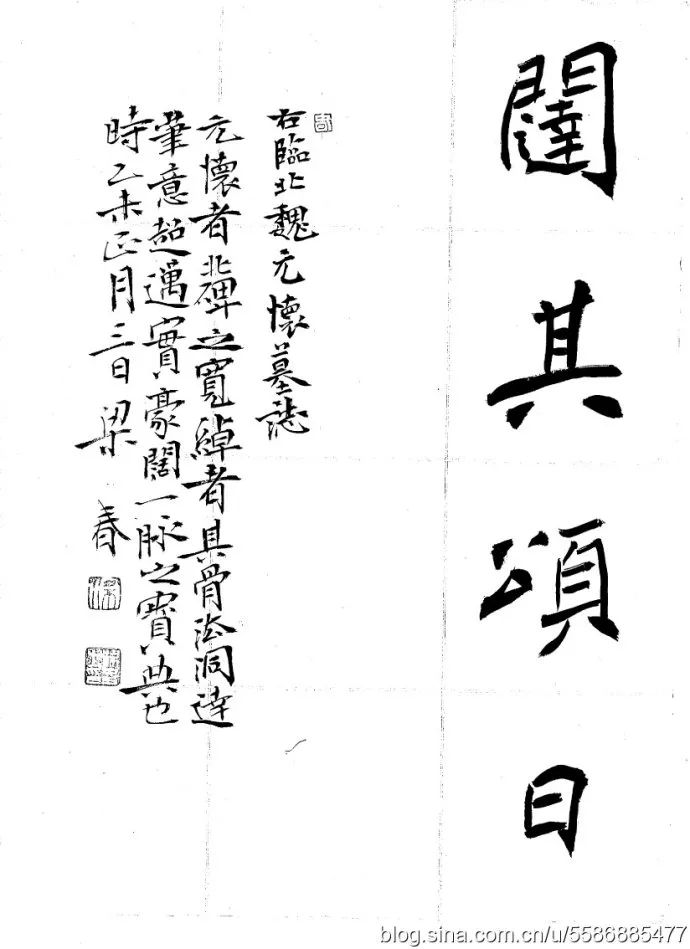 闥其頌曰
右臨北魏元懷墓誌
元懷者北碑之寬綽者具骨法洞達
筆意超邁實豪闊一脉之寶典也
時乙未正月三日梁春
blog.sina.com.cn/u/5586885477